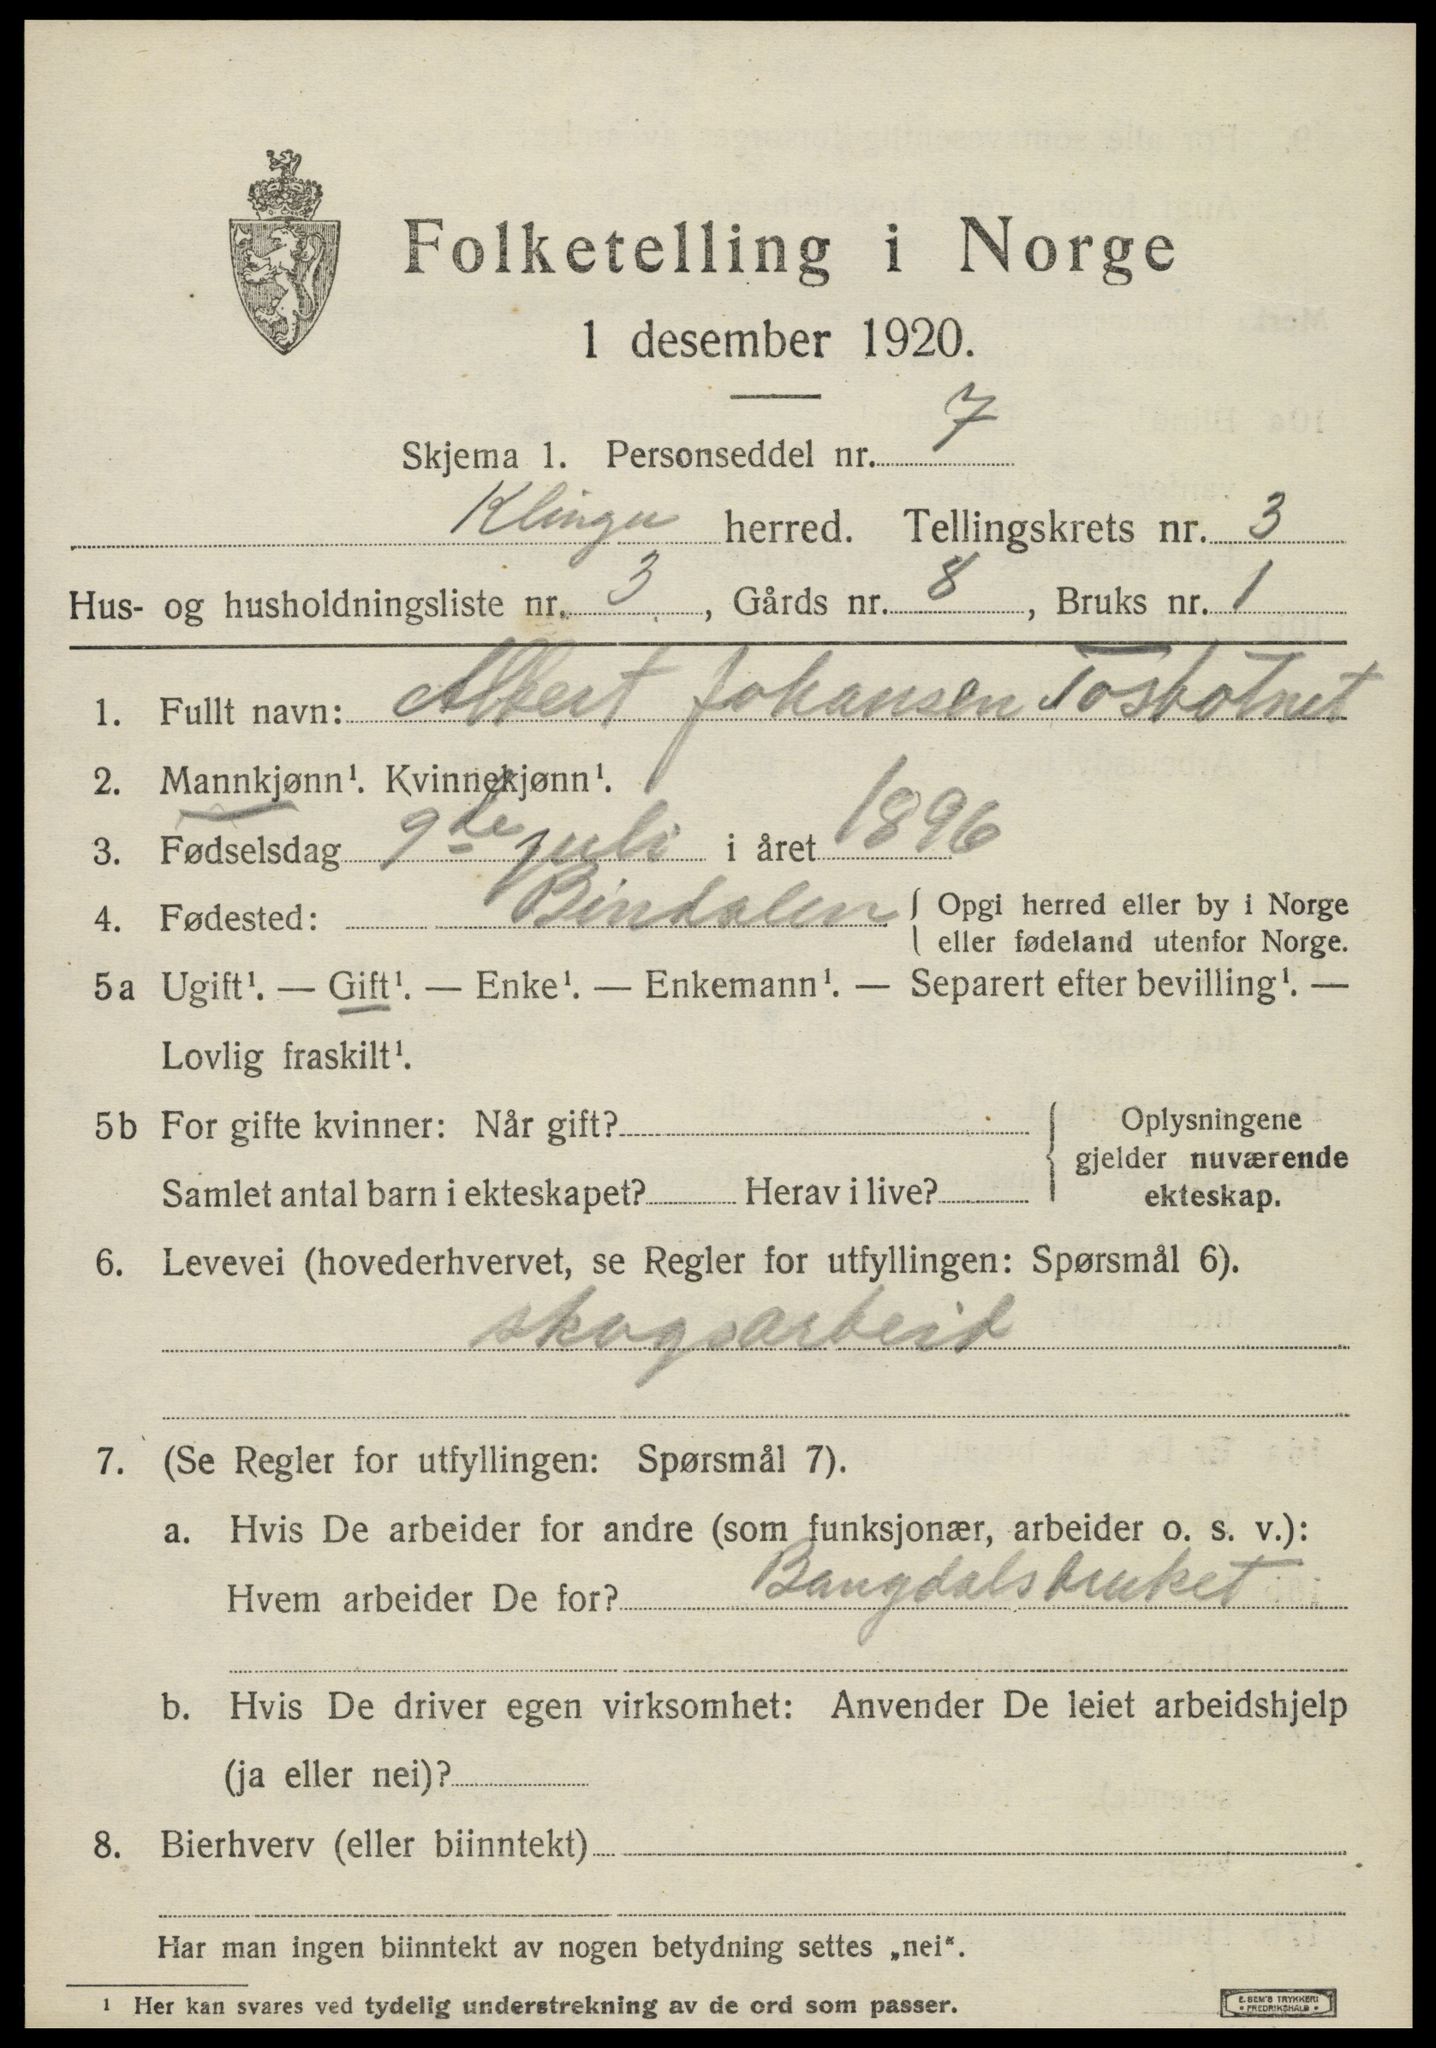 Folketelling i Norge
1 desember 1920.
Skjema 1. Personseddel nr. 7
Klinga herred. Tellingskrets nr. 3
Hus- og husholdningsliste nr. 3, Gårds nr. 8, Bruks nr. 1
1. Fullt navn: Albert Johansen Tosbotnet
2. Mannkjønn¹. Kvinnekjønn¹.
3. Fødselsdag 9de juli i året 1896
4. Fødested: Bindalen { Opgi herred eller by i Norge
eller fødeland utenfor Norge.
5a Ugift¹. — Gift¹. — Enke¹. — Enkemann¹. — Separert efter bevilling¹. —
Lovlig fraskilt¹.
5b For gifte kvinner: Når gift? { Oplysningene
gjelder nuværende
Samlet antal barn i ekteskapet? Herav i live? ekteskap.
6. Levevei (hovederhvervet, se Regler for utfyllingen: Spørsmål 6).
skogsarbeid
7. (Se Regler for utfyllingen: Spørsmål 7).
a. Hvis De arbeider for andre (som funksjonær, arbeider o. s. v.):
Hvem arbeider De for? Bangdalsbruket
b. Hvis De driver egen virksomhet: Anvender De leiet arbeidshjelp
(ja eller nei)?
8. Bierhverv (eller biinntekt)
Har man ingen biinntekt av nogen betydning settes „nei“.
¹ Her kan svares ved tydelig understrekning av de ord som passer.
E. SEM'S TRYKKERI
• FREDRIKSHALD •